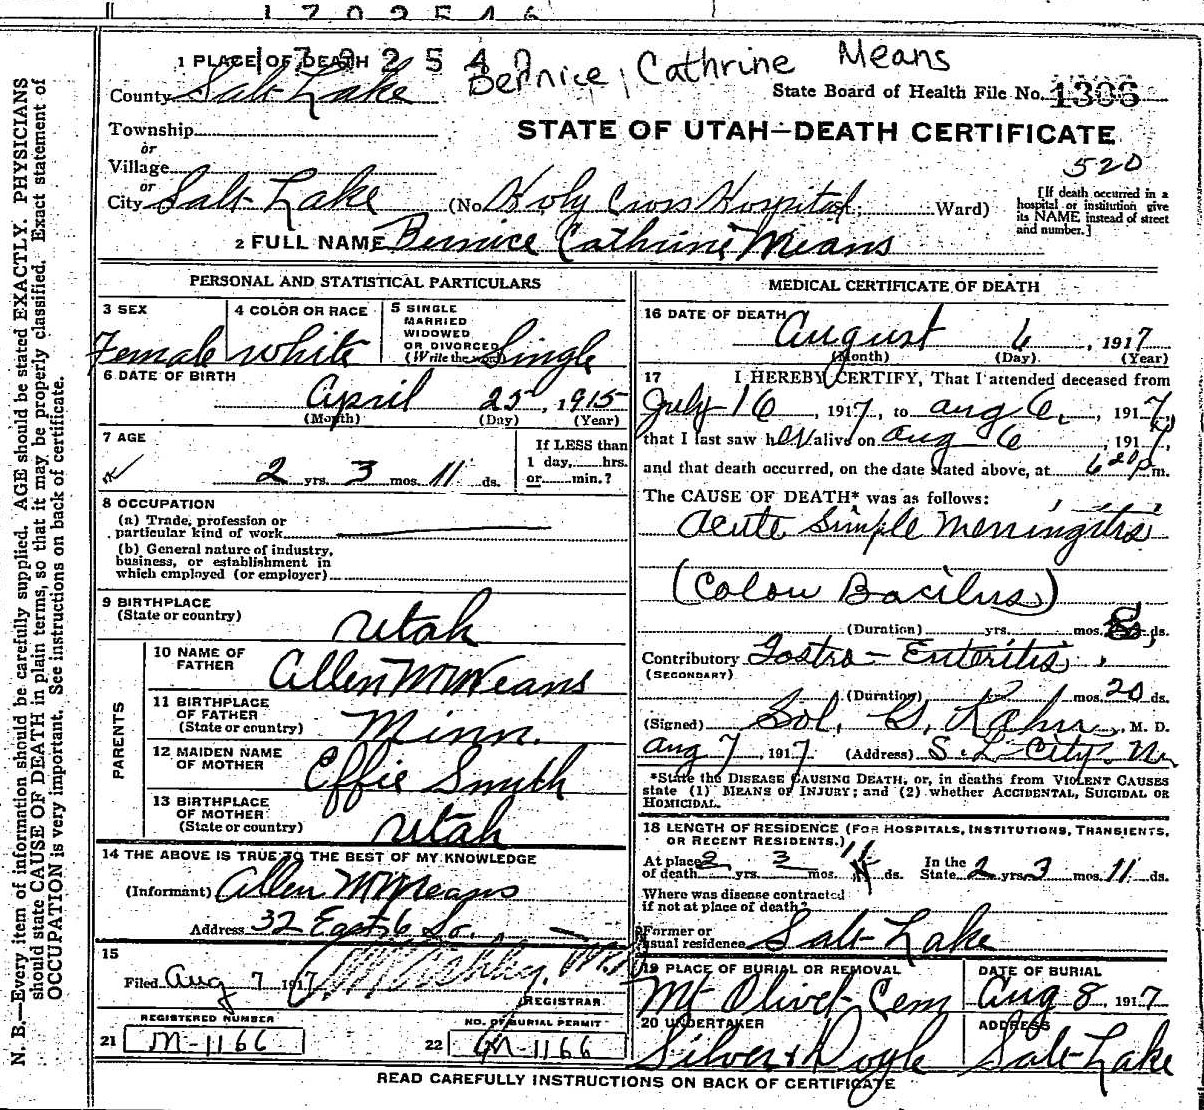 1792546
1 PLACE OF DEATH 179254
Bernice Cathrine Means
County Salt Lake
State Board of Health File No. 1306
Township
or
STATE OF UTAH—DEATH CERTIFICATE
Village
or
520
City Salt Lake (No. Holy Cross Hospital; Ward)
[If death occurred in a
hospital or institution give
its NAME instead of street
and number.]
2 FULL NAME Bernice Cathrine Means
PERSONAL AND STATISTICAL PARTICULARS
3 SEX
Female
4 COLOR OR RACE
white
5 SINGLE
MARRIED
WIDOWED
OR DIVORCED
(Write the word) Single
6 DATE OF BIRTH
April 25, 1915
(Month) (Day) (Year)
7 AGE
2 yrs. 3 mos. 11 ds.
If LESS than
1 day, hrs.
or min.?
8 OCCUPATION
(a) Trade, profession or
particular kind of work
(b) General nature of industry,
business, or establishment in
which employed (or employer)
9 BIRTHPLACE
(State or country)
Utah
PARENTS
10 NAME OF
FATHER
Allen M Means
11 BIRTHPLACE
OF FATHER
(State or country)
Minn.
12 MAIDEN NAME
OF MOTHER
Effie Smyth
13 BIRTHPLACE
OF MOTHER
(State or country)
Utah
14 THE ABOVE IS TRUE TO THE BEST OF MY KNOWLEDGE
(Informant) Allen M Means
Address 32 East 6 So.
15
Filed Aug 7 1917
REGISTRAR
REGISTERED NUMBER
21 M-1166
NO. OF BURIAL PERMIT
22 M-1166
MEDICAL CERTIFICATE OF DEATH
16 DATE OF DEATH
August 6, 1917
(Month) (Day) (Year)
17 I HEREBY CERTIFY, That I attended deceased from
July 16, 1917, to Aug 6, 1917,
that I last saw her alive on Aug 6, 1917,
and that death occurred, on the date stated above, at 6 20 p m.
The CAUSE OF DEATH* was as follows:
Acute Simple Menningitis
(Colon Bacilus)
(Duration) yrs. mos. 8 ds.
Contributory Gastro-Enteritis
(SECONDARY)
(Duration) mos. 20 ds.
(Signed) Sol. G. Kahn, M. D.
Aug 7, 1917 (Address) S. L. City
*State the DISEASE CAUSING DEATH, or, in deaths from VIOLENT CAUSES
state (1) MEANS OF INJURY; and (2) whether ACCIDENTAL, SUICIDAL OR
HOMICIDAL.
18 LENGTH OF RESIDENCE (FOR HOSPITALS, INSTITUTIONS, TRANSIENTS,
OR RECENT RESIDENTS.)
At place
of death 2 yrs. 3 mos. 11 ds.
In the
State 2 yrs. 3 mos. 11 ds.
Where was disease contracted
if not at place of death?
Former or
usual residence Salt Lake
19 PLACE OF BURIAL OR REMOVAL
Mt Olivet Cem
DATE OF BURIAL
Aug 8, 1917
20 UNDERTAKER
Silver & Doyle
ADDRESS
Salt Lake
READ CAREFULLY INSTRUCTIONS ON BACK OF CERTIFICATE
N. B.—Every item of information should be carefully supplied. AGE should be stated EXACTLY. PHYSICIANS
should state CAUSE OF DEATH in plain terms, so that it may be properly classified. Exact statement of
OCCUPATION is very important. See instructions on back of certificate.